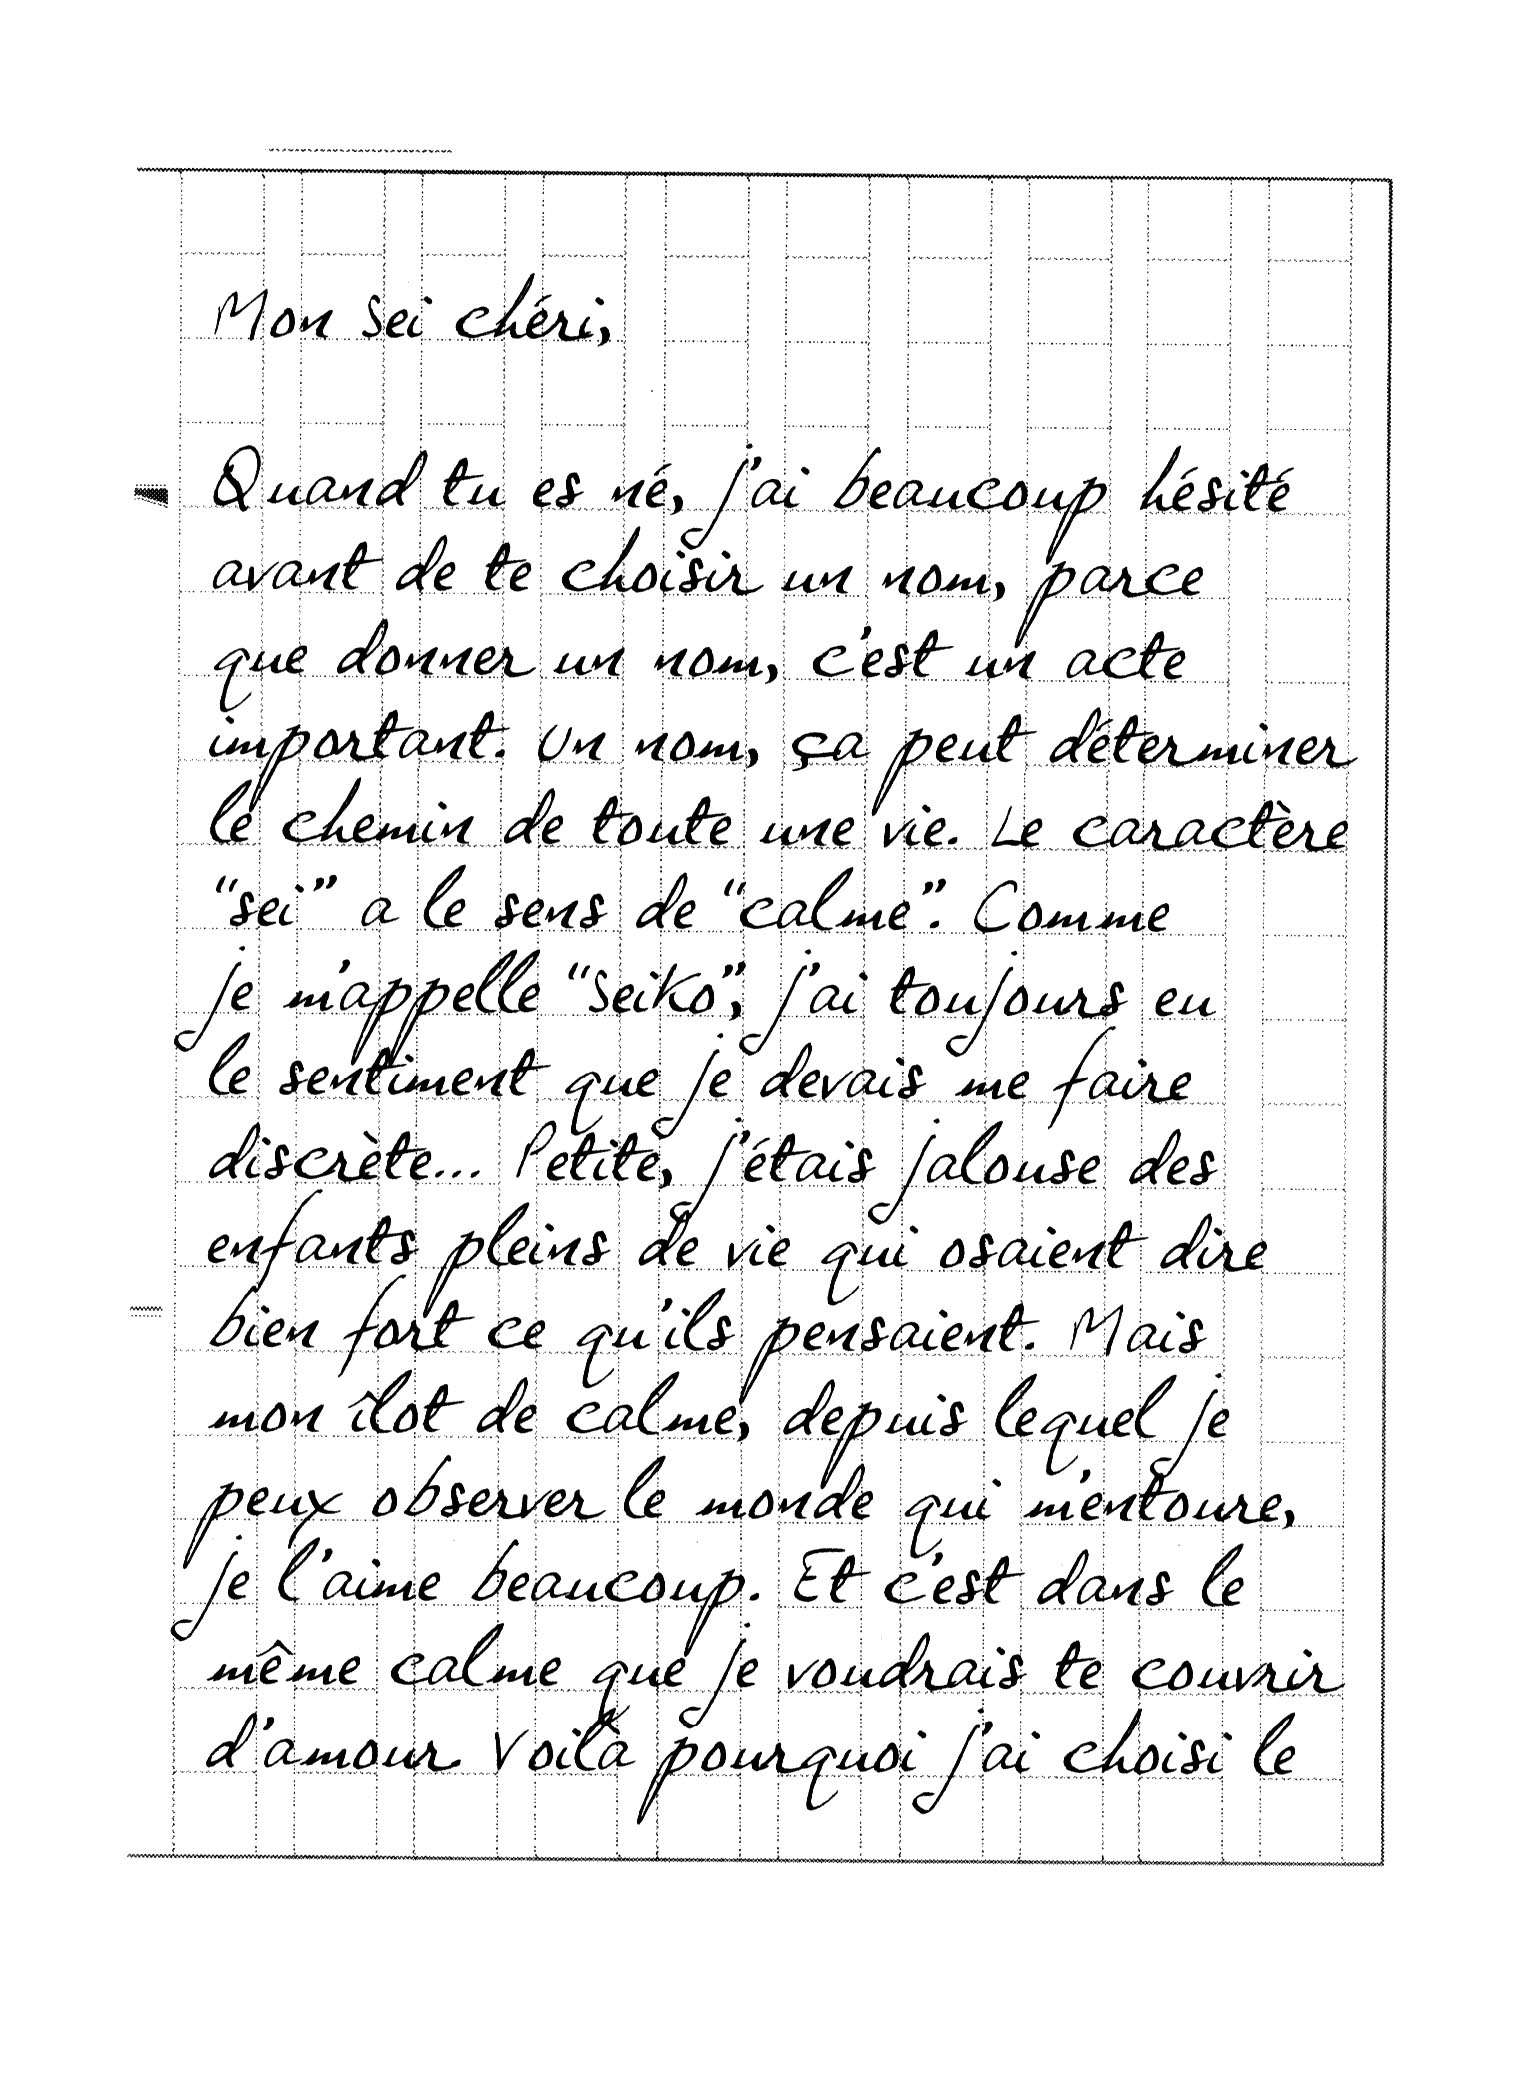 Mon Sei chéri,
Quand tu es né, j'ai beaucoup hésité
avant de te choisir un nom, parce
que donner un nom, c'est un acte
important. Un nom, ça peut déterminer
le chemin de toute une vie. Le caractère
“sei” a le sens de “calme”. Comme
je m'appelle “Seiko”, j'ai toujours eu
le sentiment que je devais me faire
discrète... Petite, j'étais jalouse des
enfants pleins de vie qui osaient dire
bien fort ce qu'ils pensaient. Mais
mon îlot de calme, depuis lequel je
peux observer le monde qui m'entoure,
je l'aime beaucoup. Et c'est dans le
même calme que je voudrais te couvrir
d'amour. Voilà pourquoi j'ai choisi le